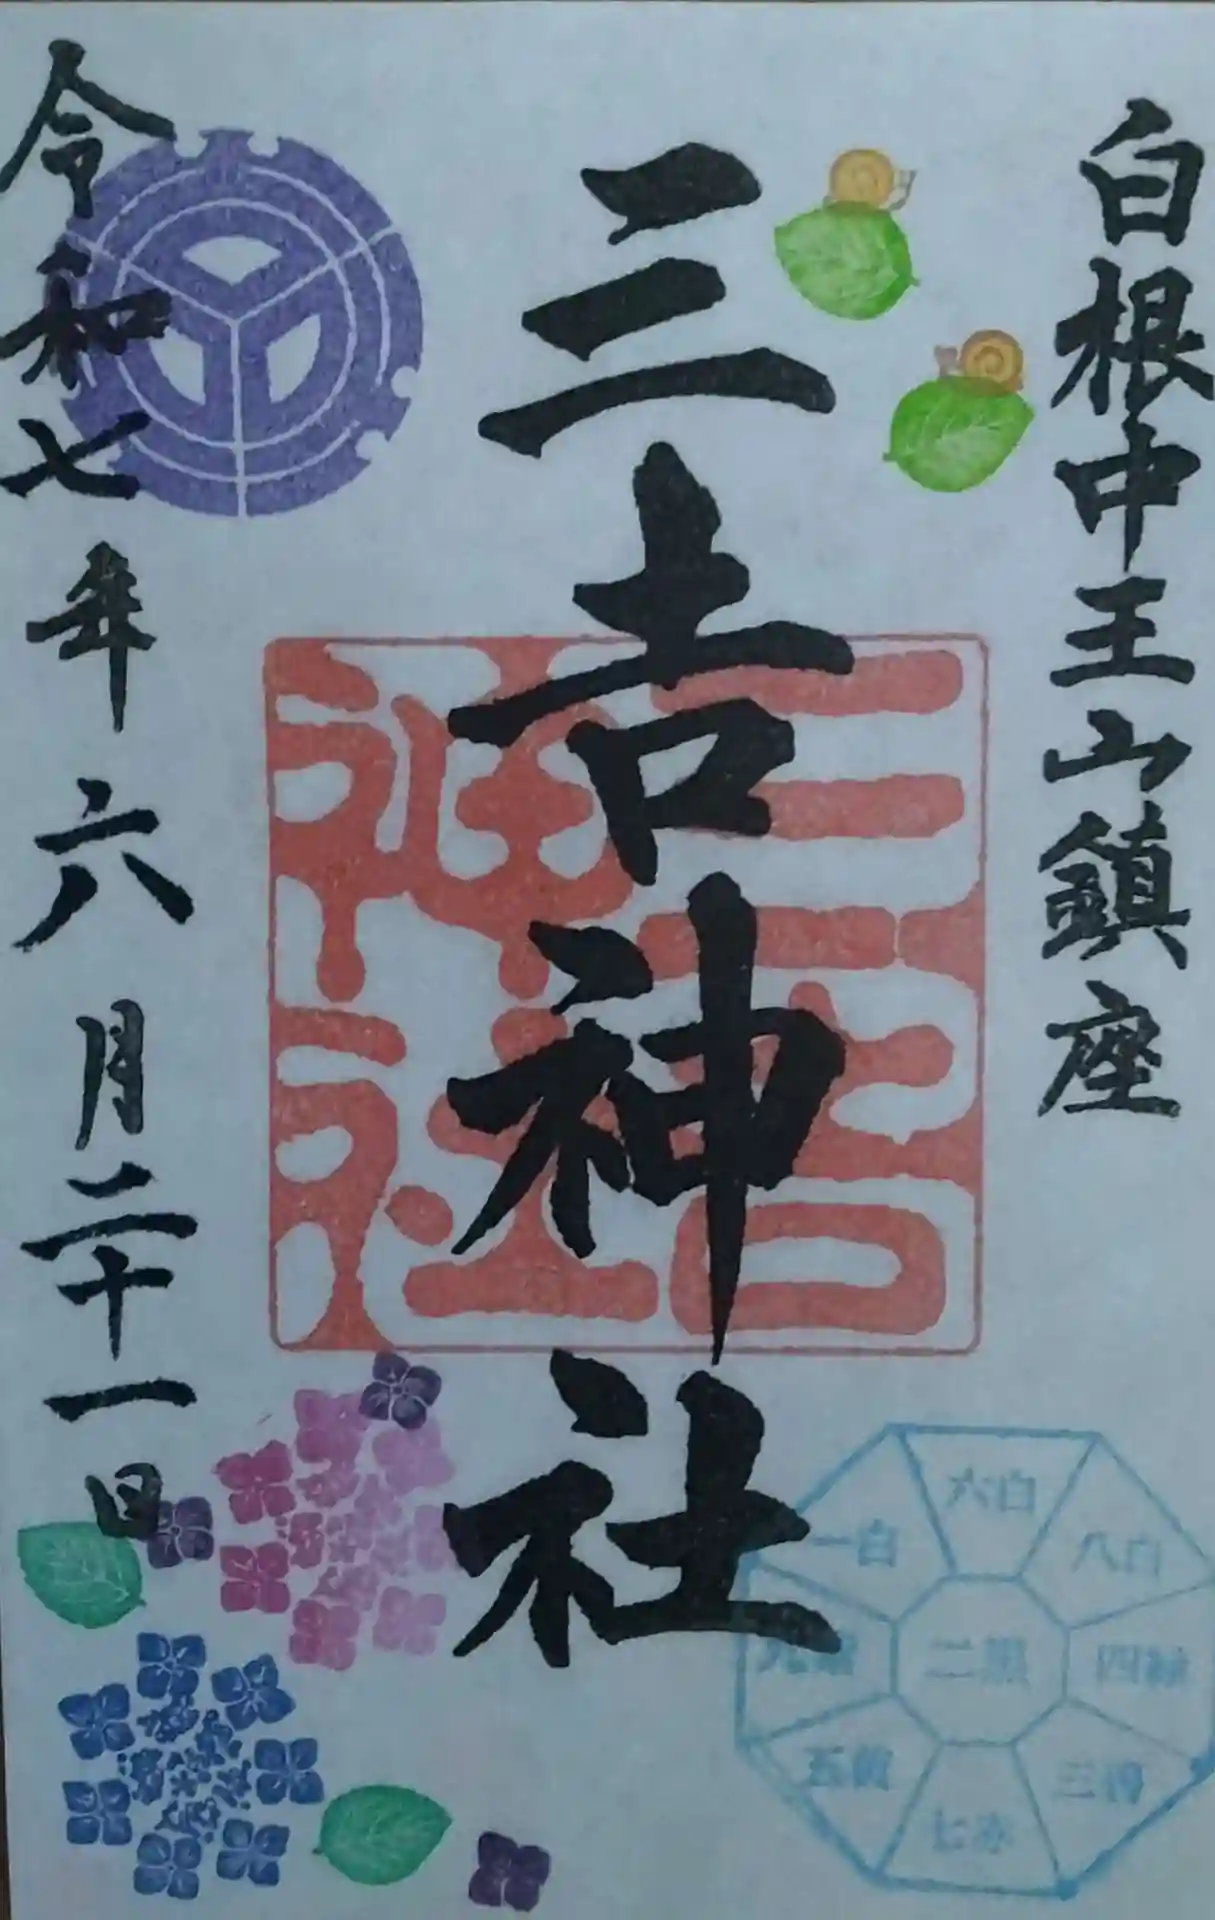 白根中王山鎮座
三吉神社
令和七年六月二十一日
三吉神社
六白
一白
八白
二黒
四緑
五黄
三碧
七赤